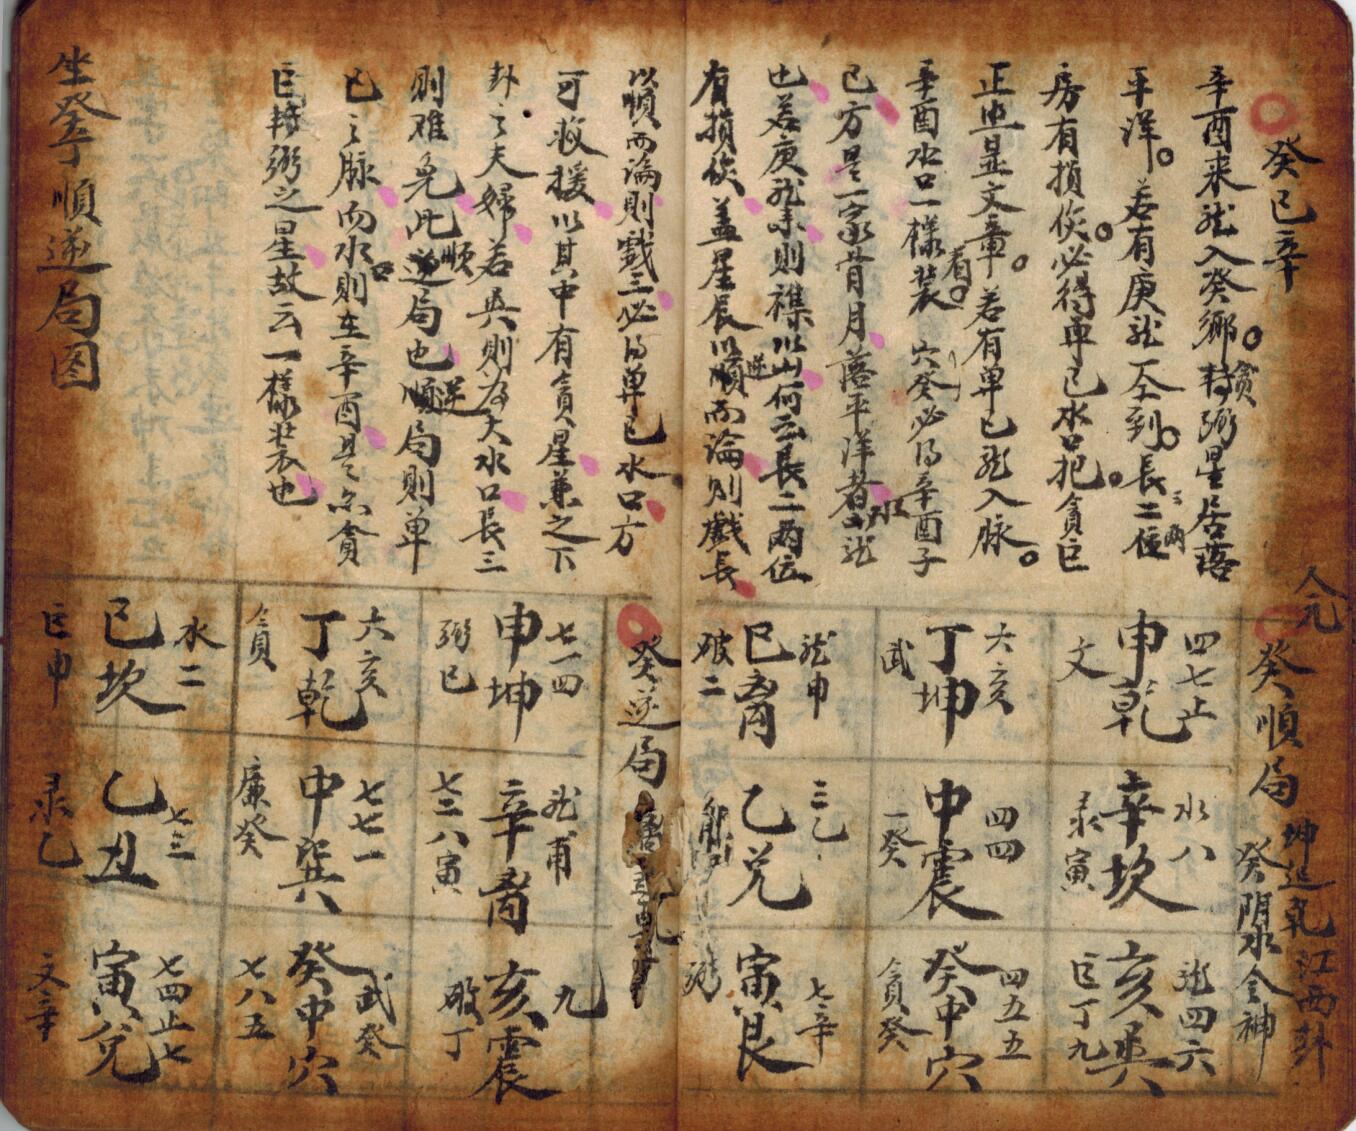 癸巳辛
辛酉来龙入癸鄉貪輔弼星居落
平洋若有庚龙仝到長二三兩位
房有損伤必得单巳水口把貪巨
正也显文章若有单巳龙入脉
辛酉水口一樣装看穴癸必得辛酉子
巳方是一家肯月落平洋者水龙
也若庚龙来則襍以山何云長二两位
有損伤盖星辰以順逆而論则戲長
以順而論則戲三必得单巳水口方
可救援以其中有貪星兼之下
卦之夫婦若巽則为大水口長三
則难免此逆順局也順逆局則单
巳之脉而水口則在辛酉是亦貪
巨輔弼之星故云一樣装也
坐癸丁順逆局图
人元
癸順局
坤逆乾江西卦
癸陽水金神
四七止
申乾
文
六亥
丁坤
武
龙申
巳离
破二
水八
辛坎
录寅
四四
中震
一癸
三乙
乙兑
龙四六
亥巽
巨丁九
四五五
癸中穴
貪癸
七辛
寅艮
弼
癸逆局
七一四
申坤
弼巳
六亥
丁乾
貪
水二
巳坎
巨申
龙甫
辛离
七二八寅
七七一
中巽
廉癸
七三
乙丑
录乙
九
亥震
破丁
武癸
癸中穴
七八五
七四止七
寅兑
文辛